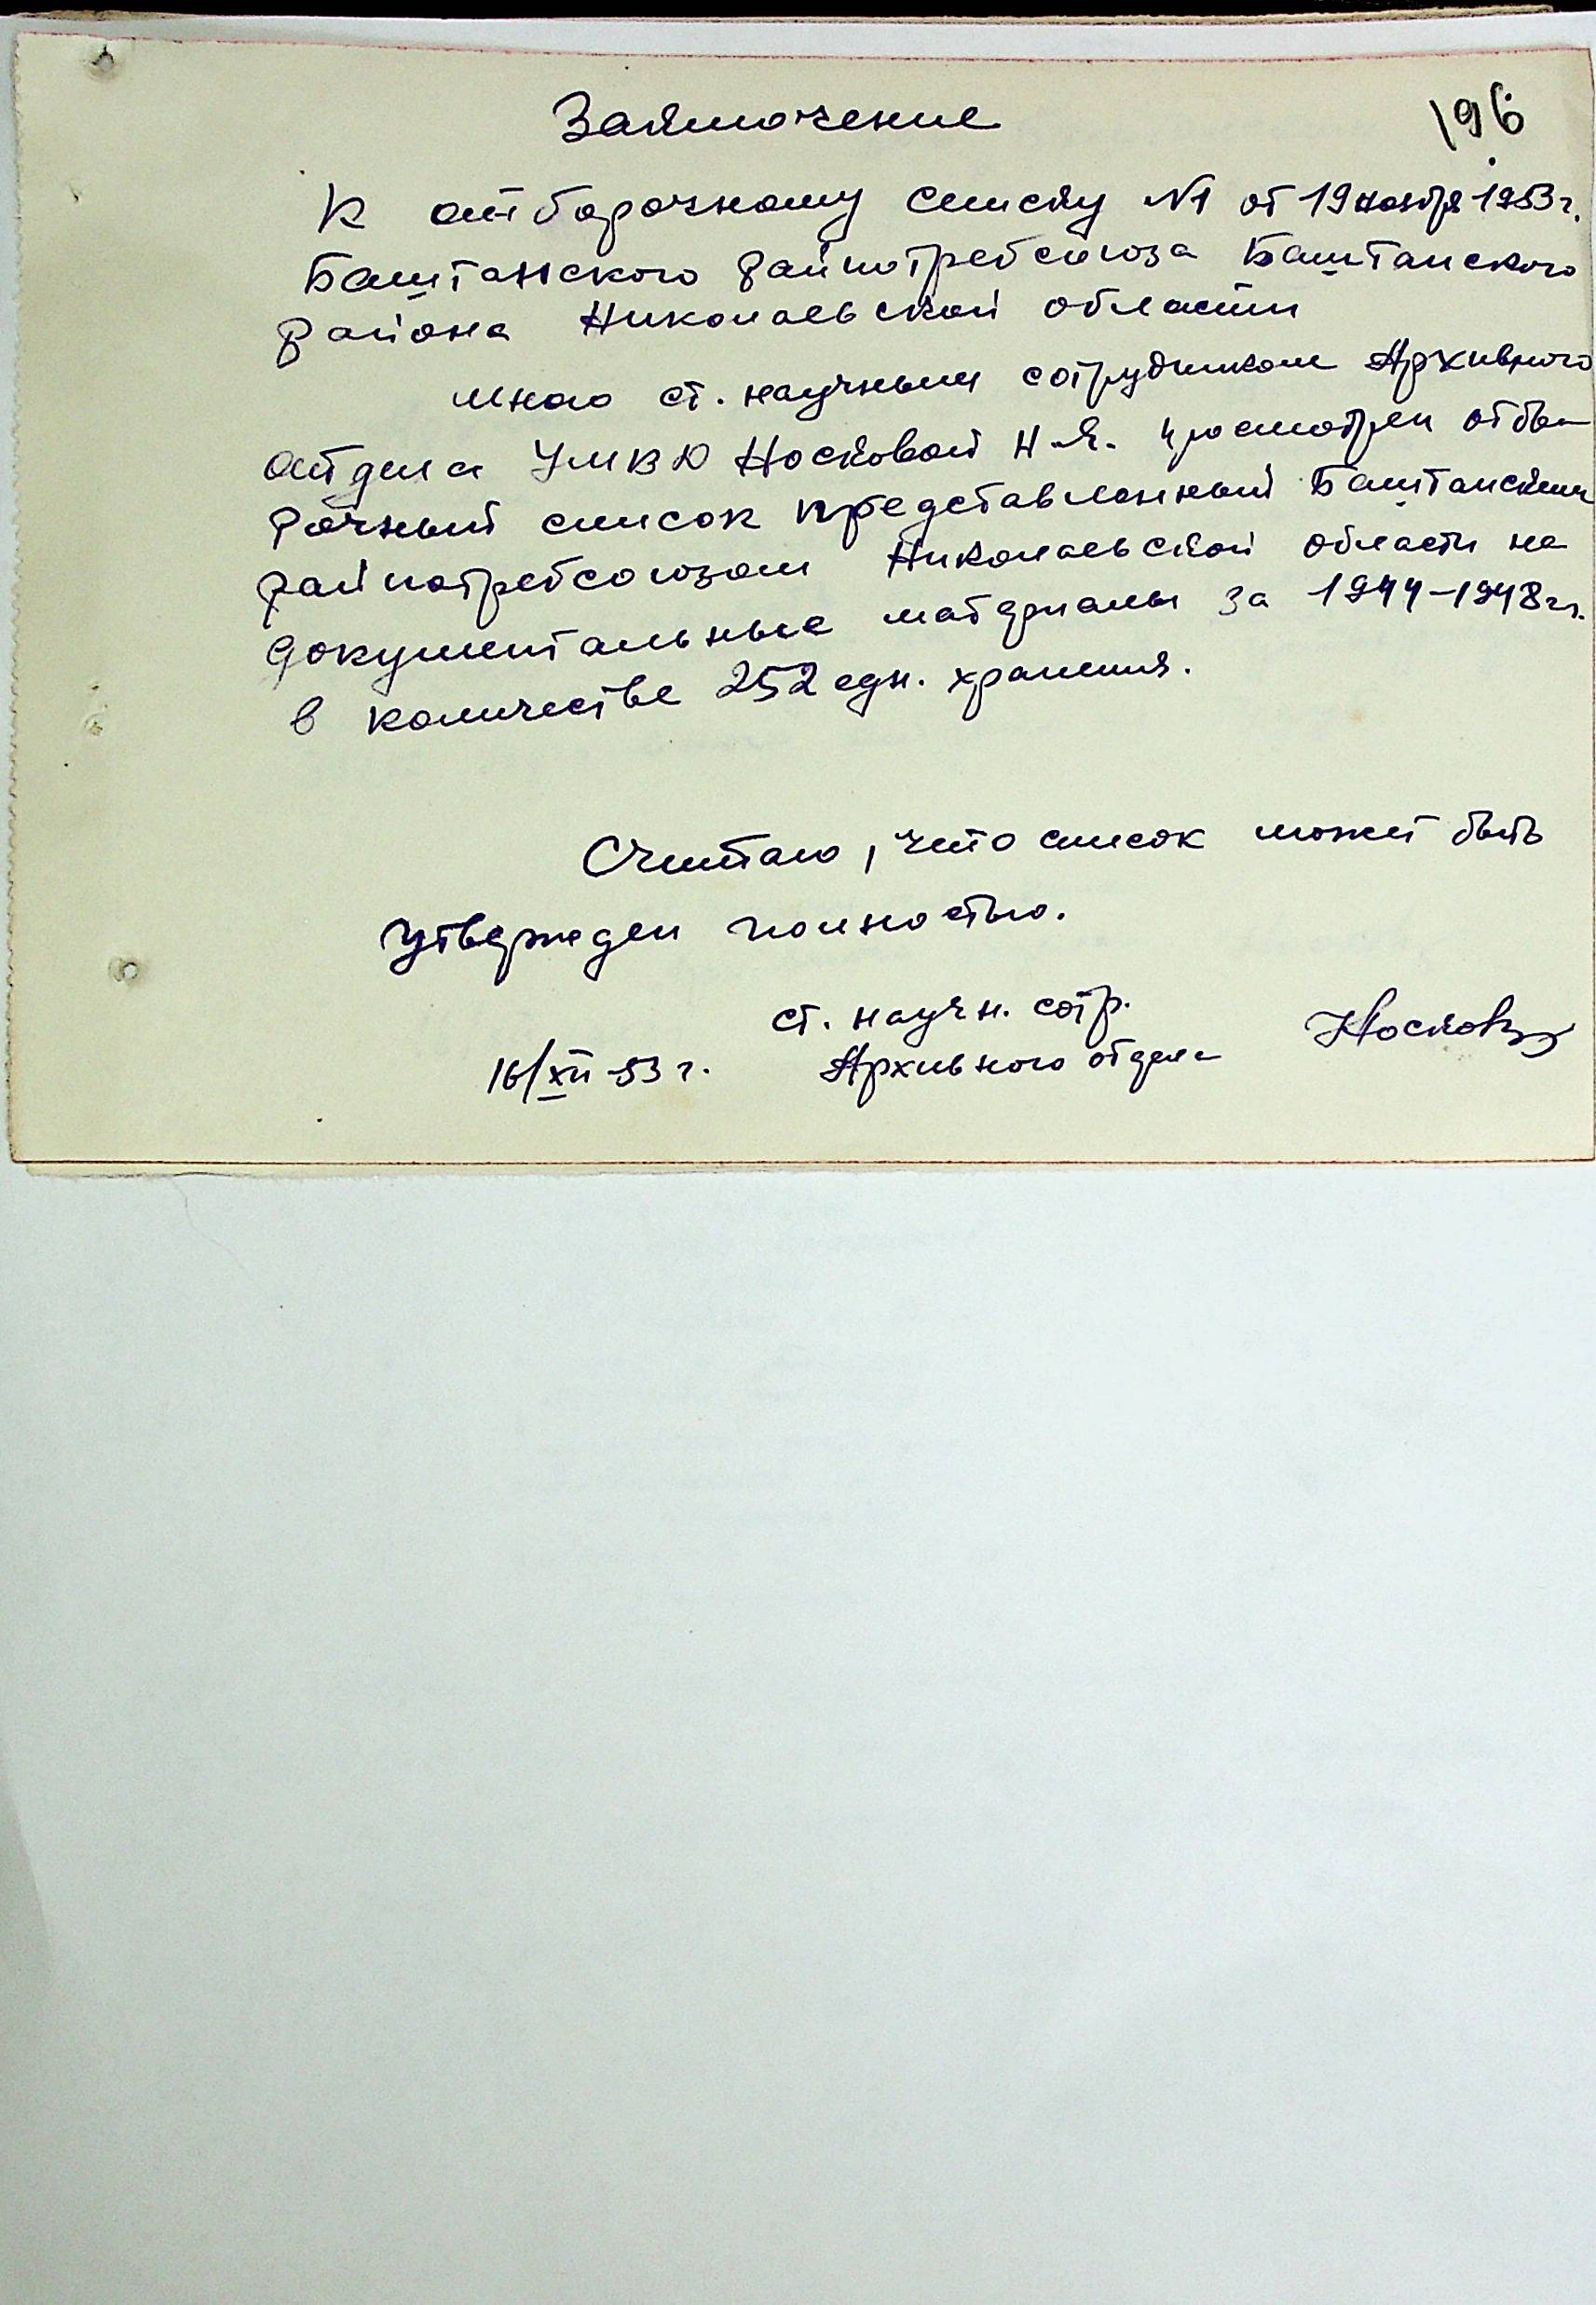 Заключение
196
К отборочному списку №1 от 19 ноября 1953 г.
Баштанского райпотребсоюза Баштанского
района Николаевской области
мною ст. научным сотрудником Архивного
отдела УМВД Носковой Н.Я. просмотрен отбо-
рочный список представленный Баштанским
райпотребсоюзом Николаевской области на
документальные материалы за 1944-1948 гг.
в количестве 252 едн. хранения.
Считаю, что список может быть
утвержден полностью.
ст. научн. сотр.
Архивного отдела Носкова
16/XII-53 г.